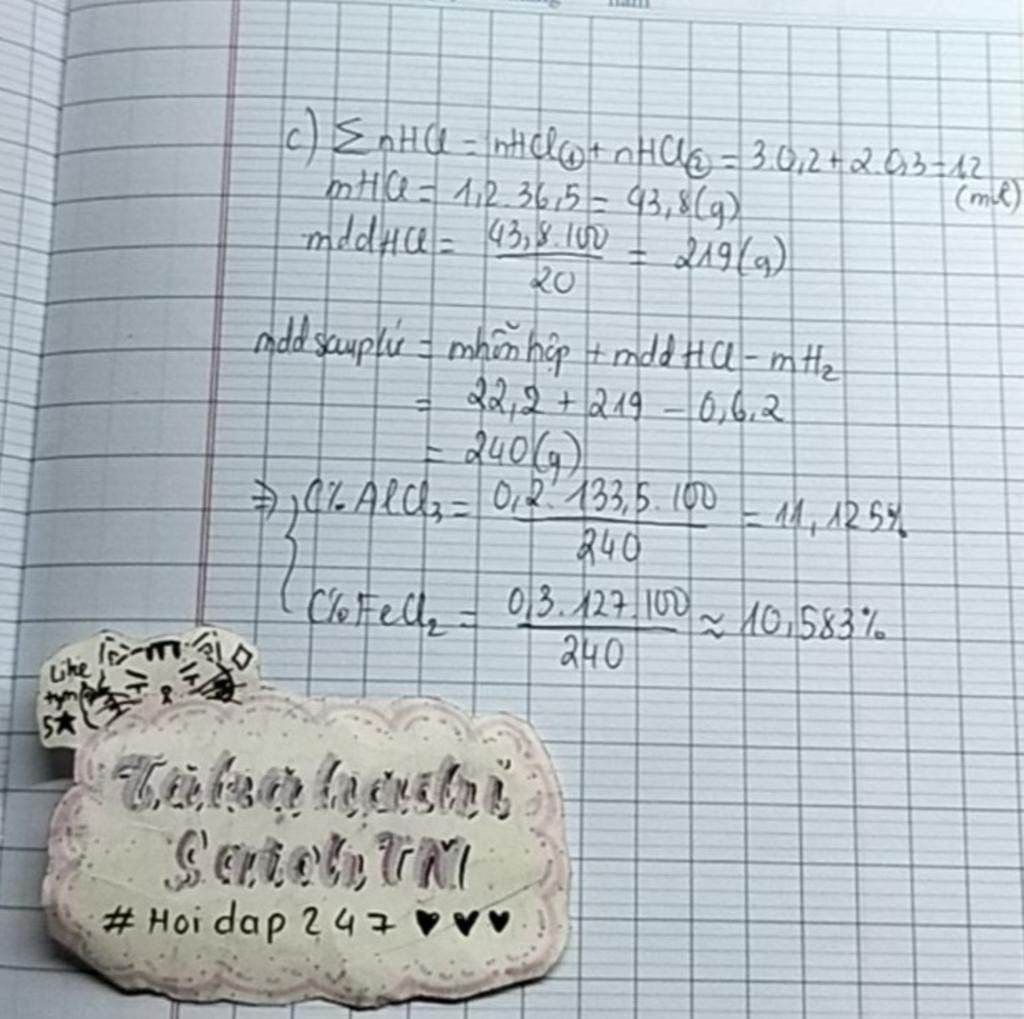 năm
c) ΣnHCl = nHCl① + nHCl② = 3.0,2 + 2.0,3 = 1,2
(mol)
mHCl = 1,2.36,5 = 43,8(g)
mddHCl = 43,8.100 / 20 = 219(g)
mdd sau pứ = m hỗn hợp + mddHCl - mH₂
= 22,2 + 219 - 0,6.2
= 240(g)
⇒ { C% AlCl₃ = 0,2.133,5.100 / 240 = 11,125%
C% FeCl₂ = 0,3.127.100 / 240 ≈ 10,583%
Like
tym
5★
Takahashi
#Hoidap247 ♥♥♥